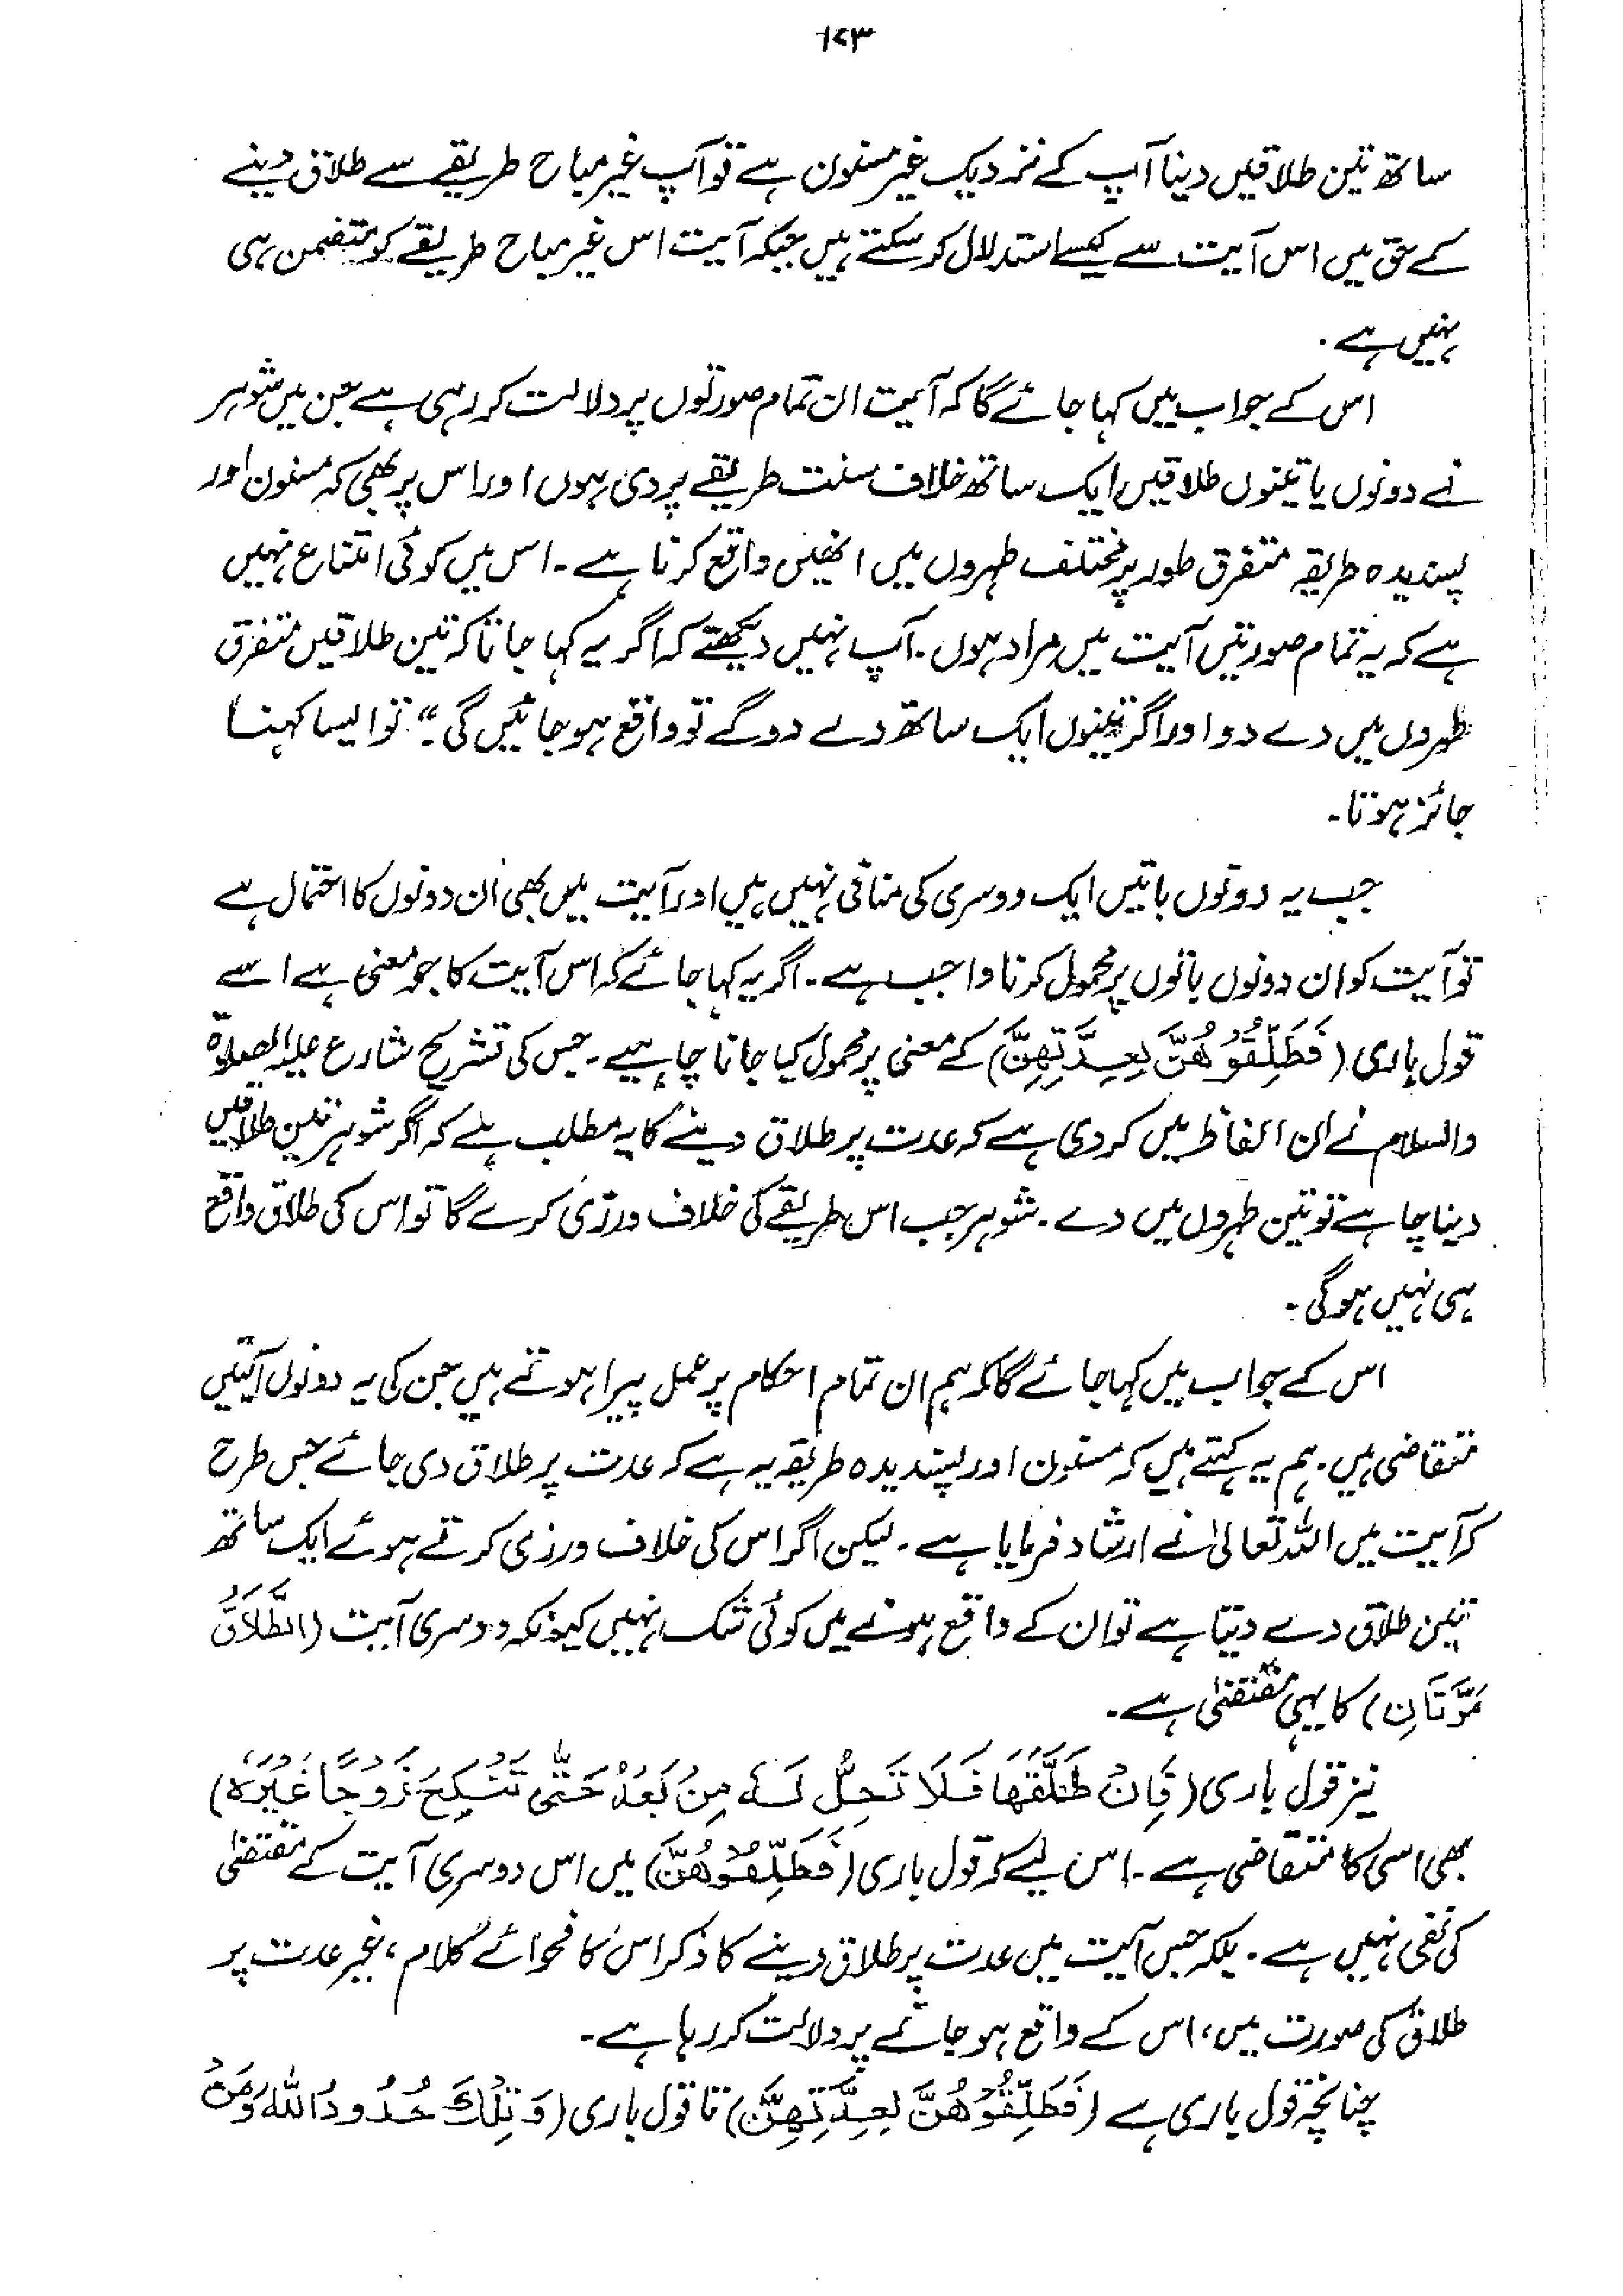 ۱۷۳
ساتھ تین طلاقیں دینا آپ کے نزدیک غیر مسنون ہے تو آپ غیر مباح طریقے سے طلاق دینے
کے حق میں اس آیت سے کیسے استدلال کر سکتے ہیں جبکہ آیت اس غیر مباح طریقے کو متضمن ہی
نہیں ہے۔
اس کے جواب میں کہا جائے گا کہ آیت ان تمام صورتوں پر دلالت کر رہی ہے جن میں شوہر
نے دونوں یا تینوں طلاقیں ایک ساتھ خلاف سنت طریقے پر دی ہوں اور اس پر بھی کہ مسنون اور
پسندیدہ طریقہ متفرق طور پر مختلف طہروں میں انھیں واقع کرنا ہے۔ اس میں کوئی امتناع نہیں
ہے کہ یہ تمام صورتیں آیت میں مراد ہوں۔ آپ نہیں دیکھتے کہ اگر یہ کہا جاتا کہ تین طلاقیں متفرق
طہروں میں دے دو اور اگر تینوں ایک ساتھ دے دو گے تو واقع ہو جائیں گی“ تو ایسا کہنا
جائز ہوتا۔
جب یہ دونوں باتیں ایک دوسری کی منافی نہیں ہیں اور آیت میں بھی ان دونوں کا احتمال ہے
تو آیت کو ان دونوں باتوں پر محمول کرنا واجب ہے۔ اگر یہ کہا جائے کہ اس آیت کا جو معنی ہے اسے
قول باری (فَطَلِّقُوْهُنَّ لِعِدَّتِهِنَّ) کے معنی پر محمول کیا جانا چاہیے۔ جس کی تشریح شارع علیہ الصلوٰۃ
والسلام نے ان الفاظ میں کر دی ہے کہ عدت پر طلاق دینے کا یہ مطلب ہے کہ اگر شوہر تین طلاقیں
دینا چاہے تو تین طہروں میں دے۔ شوہر جب اس طریقے کی خلاف ورزی کرے گا تو اس کی طلاق واقع
ہی نہیں ہوگی۔
اس کے جواب میں کہا جائے گا کہ ہم ان تمام احکام پر عمل پیرا ہوتے ہیں جن کی یہ دونوں آیتیں
متقاضی ہیں۔ ہم یہ کہتے ہیں کہ مسنون اور پسندیدہ طریقہ یہ ہے کہ عدت پر طلاق دی جائے جس طرح
کہ آیت میں اللہ تعالیٰ نے ارشاد فرمایا ہے۔ لیکن اگر اس کی خلاف ورزی کرتے ہوئے ایک ساتھ
تین طلاق دے دیتا ہے تو ان کے واقع ہونے میں کوئی شک نہیں کیونکہ دوسری آیت (اَلطَّلَاقُ
مَرَّتَانِ) کا یہی مقتضیٰ ہے۔
نیز قول باری (فَاِنْ طَلَّقَهَا فَلَا تَحِلُّ لَهٗ مِنْ بَعْدُ حَتّٰى تَنْكِحَ زَوْجًا غَيْرَهٗ)
بھی اسی کا متقاضی ہے۔ اس لیے کہ قول باری (فَطَلِّقُوْهُنَّ) میں اس دوسری آیت کے مقتضیٰ
کی نفی نہیں ہے۔ بلکہ جس آیت میں عدت پر طلاق دینے کا ذکر اس کا فحوائے کلام، غیر عدت پر
طلاق کی صورت میں، اس کے واقع ہو جانے پر دلالت کر رہا ہے۔
چنانچہ قول باری ہے (فَطَلِّقُوْهُنَّ لِعِدَّتِهِنَّ) تا قول باری (وَتِلْكَ حُدُودُ اللهِ وَمَنْ